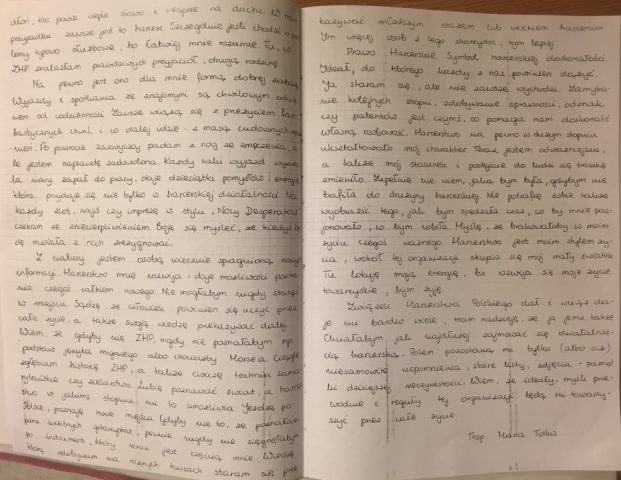 dzień, kto powie ciepłe słowo i wesprze na duchu. W moim
przypadku zawsze jest to harcerz. Szczególnie jeśli chodzi o pro-
lemy typowo służbowe, bo łatwiej mnie rozumie. Tu, w
ZHP znalazłam prawdziwych przyjaciół, drugą rodzinę.
Na pewno jest ono dla mnie formą dobrej zabawy.
Wyjazdy i spotkania ze znajomymi są chwilowym oderwa-
niem od codzienności. Zawsze wiążą się z przeżyciem fan-
tastycznych chwil i co dalej idzie - z masą cudownych wspom-
nień. Po powrocie zazwyczaj padam z nóg ze zmęczenia, a
le jestem naprawdę zadowolona. Każdy taki wyjazd wyzwa-
la nowy zapał do pracy, daje dziesiątki pomysłów i energię,
która przydaje się nie tylko w harcerskiej działalności. Na
każdy zlot, rajd czy imprezę w stylu „Nocy Desperatów"
czekam ze zniecierpliwieniem. Boję się myśleć, że kiedyś bę-
dę musiała z nich zrezygnować.
Z natury jestem osobą wiecznie spragnioną nowych
informacji. Harcerstwo mnie rozwija i daje możliwości pozna-
nia czegoś całkiem nowego. Nie mogłabym nigdy stanąć
w miejscu. Sądzę, że człowiek powinien się uczyć przez
całe życie, a także swoją wiedzę przekazywać dalej.
Wiem, że gdyby nie ZHP, nigdy nie poznałabym np.
podstaw języka migowego albo chociażby Morse'a. Ciągle
zgłębiam historię ZHP, a także ćwiczę techniki sama-
rytańskie czy zielarstwo. Lubię poznawać świat, a harcer-
stwo w jakimś stopniu mi to umożliwia. Jeżdżę po
Polsce, poznaję nowe miejsca. Gdyby nie to, że poznałam
parę świetnych gitarzystów, pewnie nigdy nie sięgnęłabym
po instrument, który teraz jest częścią mnie. Wiedzę,
którą zdobywam na różnych kursach staram się prze-
kazywać młodszym stażem lub wiekiem harcerzom.
Im więcej osób z tego skorzysta, tym lepiej.
Prawo Harcerskie. Symbol harcerskiej doskonałości.
Ideał, do którego każdy z nas powinien dążyć.
Ja staram się, ale nie zawsze wychodzi. Zamyka-
nie kolejnych stopni, zdobywanie sprawności, odznak
czy patentów jest czymś, co pomaga nam doskonalić
własną osobowość. Harcerstwo na pewno w dużym stopniu
ukształtowało mój charakter. Teraz jestem odważniejsza,
a także mój stosunek i podejście do ludzi się troszkę
zmieniło. Zupełnie nie wiem, jaka bym była, gdybym nie
trafiła do drużyny harcerskiej. Nie potrafię sobie także
wyobrazić tego, jak bym spędzała czas, co by mnie pas-
jonowało, co bym robiła. Myślę, że brakowałoby w moim
życiu czegoś ważnego. Harcerstwo jest moim stylem ży-
cia, wokół tej organizacji skupia się mój mały światek.
Tu lokuję moją energię, tu rozwija się moje życie
towarzyskie, tym żyję.
Związek Harcerstwa Polskiego dał i wciąż da-
je mi bardzo wiele, mam nadzieję, że ja jemu także.
Chciałabym, jak najdłużej zajmować się działalnoś-
cią harcerską. Potem pozostaną mi tylko (albo aż)
niesamowite wspomnienia, stare listy, zdjęcia - pamiąt-
ki dzisiejszej rzeczywistości. Wiem, że ideały, myśli prze-
wodnie i reguły tej organizacji będą mi towarzy-
szyć przez całe życie.
Trop. Maria Tolba